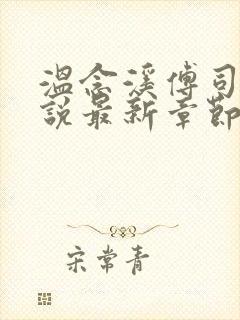 温念溪傅司
說最新章節
宋常青